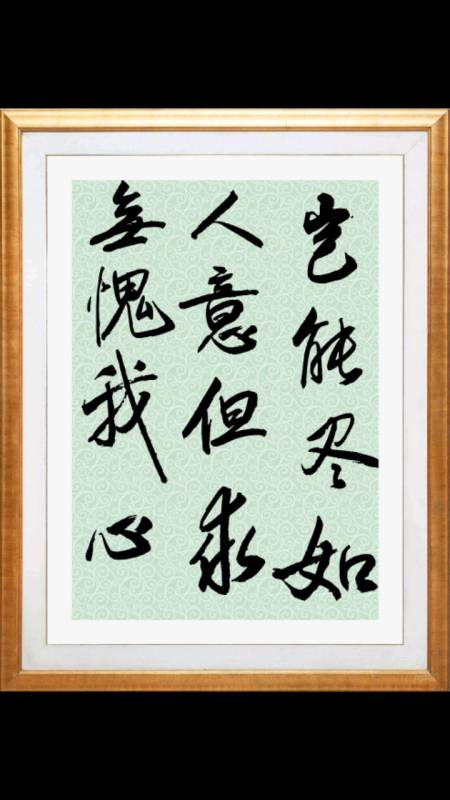 岂能尽如
人意但求
無愧我心